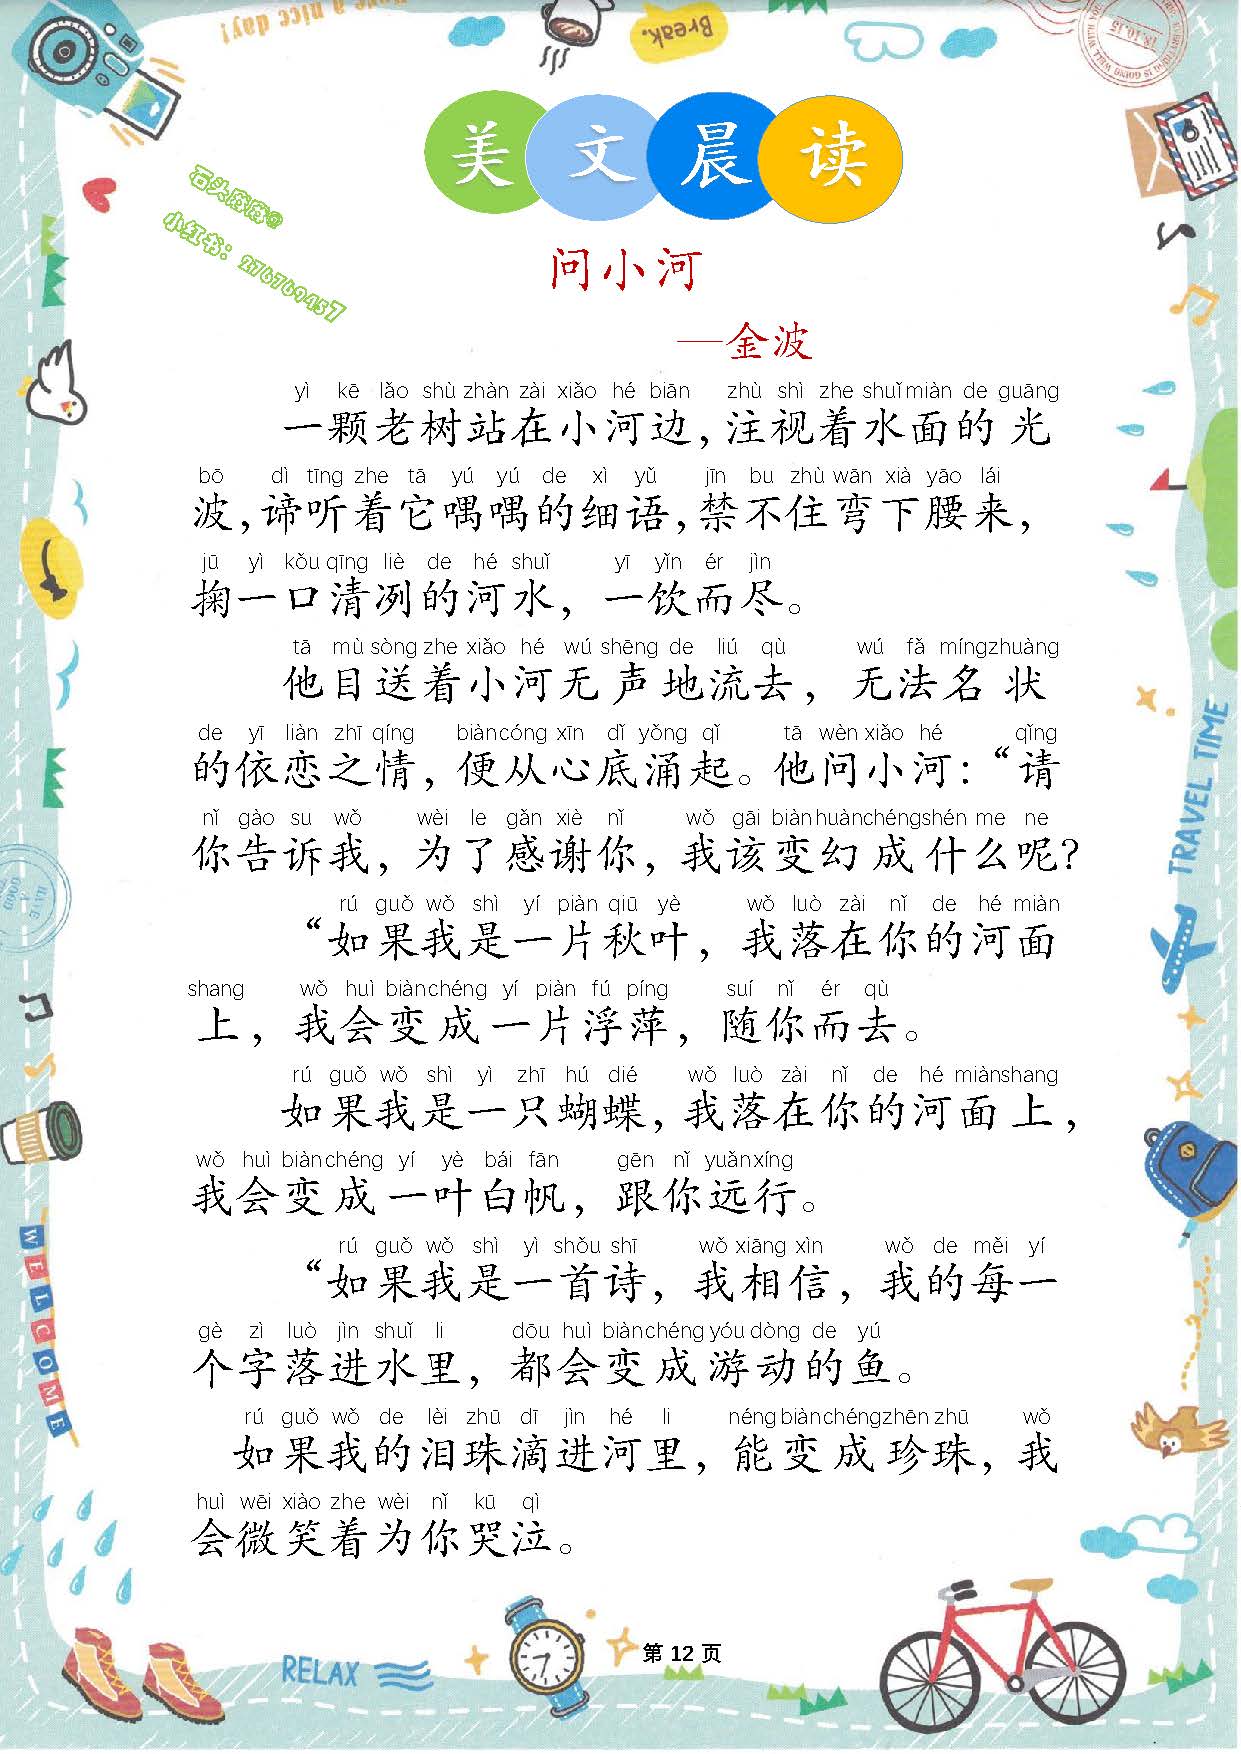 Have a nice day!
Break.
18.10.15
美文晨读
石头爸爸@
小红书：276769457
问小河
—金波
yì kē lǎo shù zhàn zài xiǎo hé biān zhù shì zhe shuǐ miàn de guāng
一颗老树站在小河边，注视着水面的光
bō dì tīng zhe tā yú yú de xì yǔ jīn bu zhù wān xià yāo lái
波，谛听着它喁喁的细语，禁不住弯下腰来，
jū yì kǒu qīng liè de hé shuǐ yī yǐn ér jìn
掬一口清冽的河水，一饮而尽。
tā mù sòng zhe xiǎo hé wú shēng de liú qù wú fǎ míng zhuàng
他目送着小河无声地流去，无法名状
de yī liàn zhī qíng biàn cóng xīn dǐ yǒng qǐ tā wèn xiǎo hé qǐng
的依恋之情，便从心底涌起。他问小河：“请
nǐ gào su wǒ wèi le gǎn xiè nǐ wǒ gāi biàn huàn chéng shén me ne
你告诉我，为了感谢你，我该变幻成什么呢？
rú guǒ wǒ shì yí piàn qiū yè wǒ luò zài nǐ de hé miàn
“如果我是一片秋叶，我落在你的河面
shang wǒ huì biàn chéng yí piàn fú píng suí nǐ ér qù
上，我会变成一片浮萍，随你而去。
rú guǒ wǒ shì yì zhī hú dié wǒ luò zài nǐ de hé miàn shang
如果我是一只蝴蝶，我落在你的河面上，
wǒ huì biàn chéng yí yè bái fān gēn nǐ yuǎn xíng
我会变成一叶白帆，跟你远行。
rú guǒ wǒ shì yì shǒu shī wǒ xiāng xìn wǒ de měi yí
“如果我是一首诗，我相信，我的每一
gè zì luò jìn shuǐ li dōu huì biàn chéng yóu dòng de yú
个字落进水里，都会变成游动的鱼。
rú guǒ wǒ de lèi zhū dī jìn hé li néng biàn chéng zhēn zhū wǒ
如果我的泪珠滴进河里，能变成珍珠，我
huì wēi xiào zhe wèi nǐ kū qì
会微笑着为你哭泣。
TRAVEL TIME
WELCOME
RELAX
第 12 页